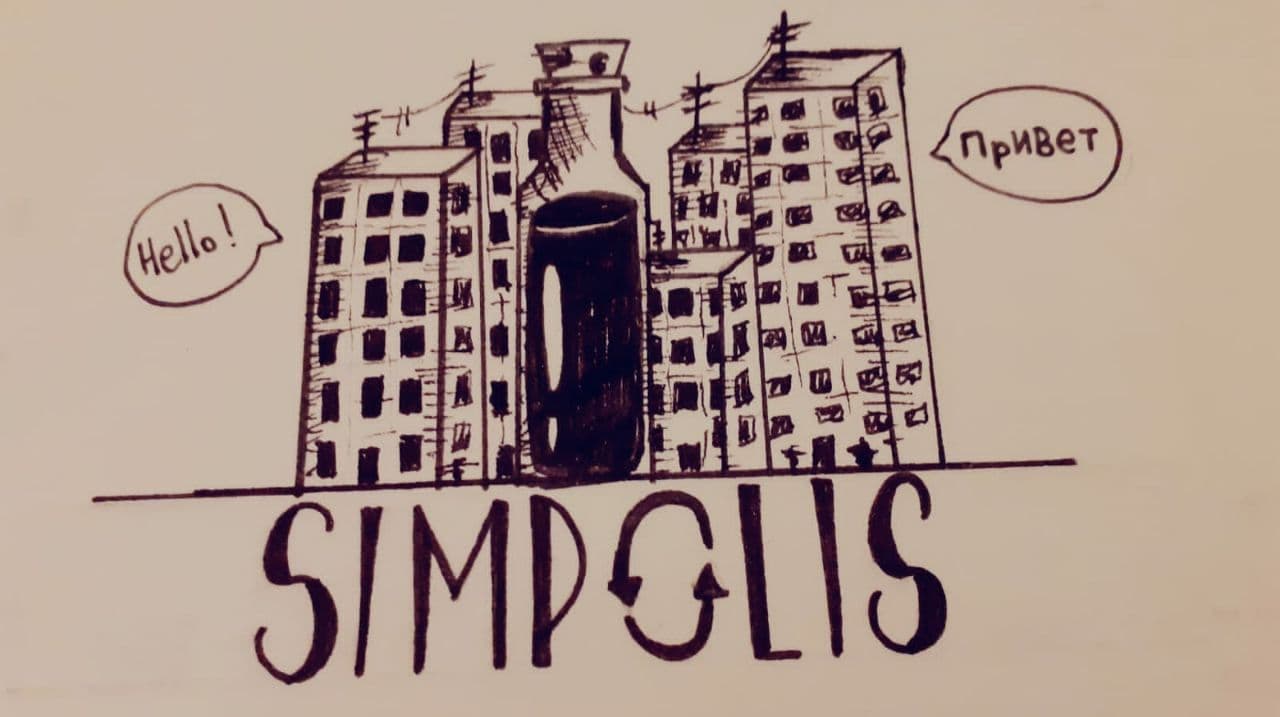 Hello!
Привет
SIMPOLIS